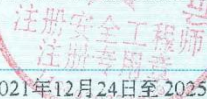 注册安全工程师
注册专用章
021年12月24日至 2025